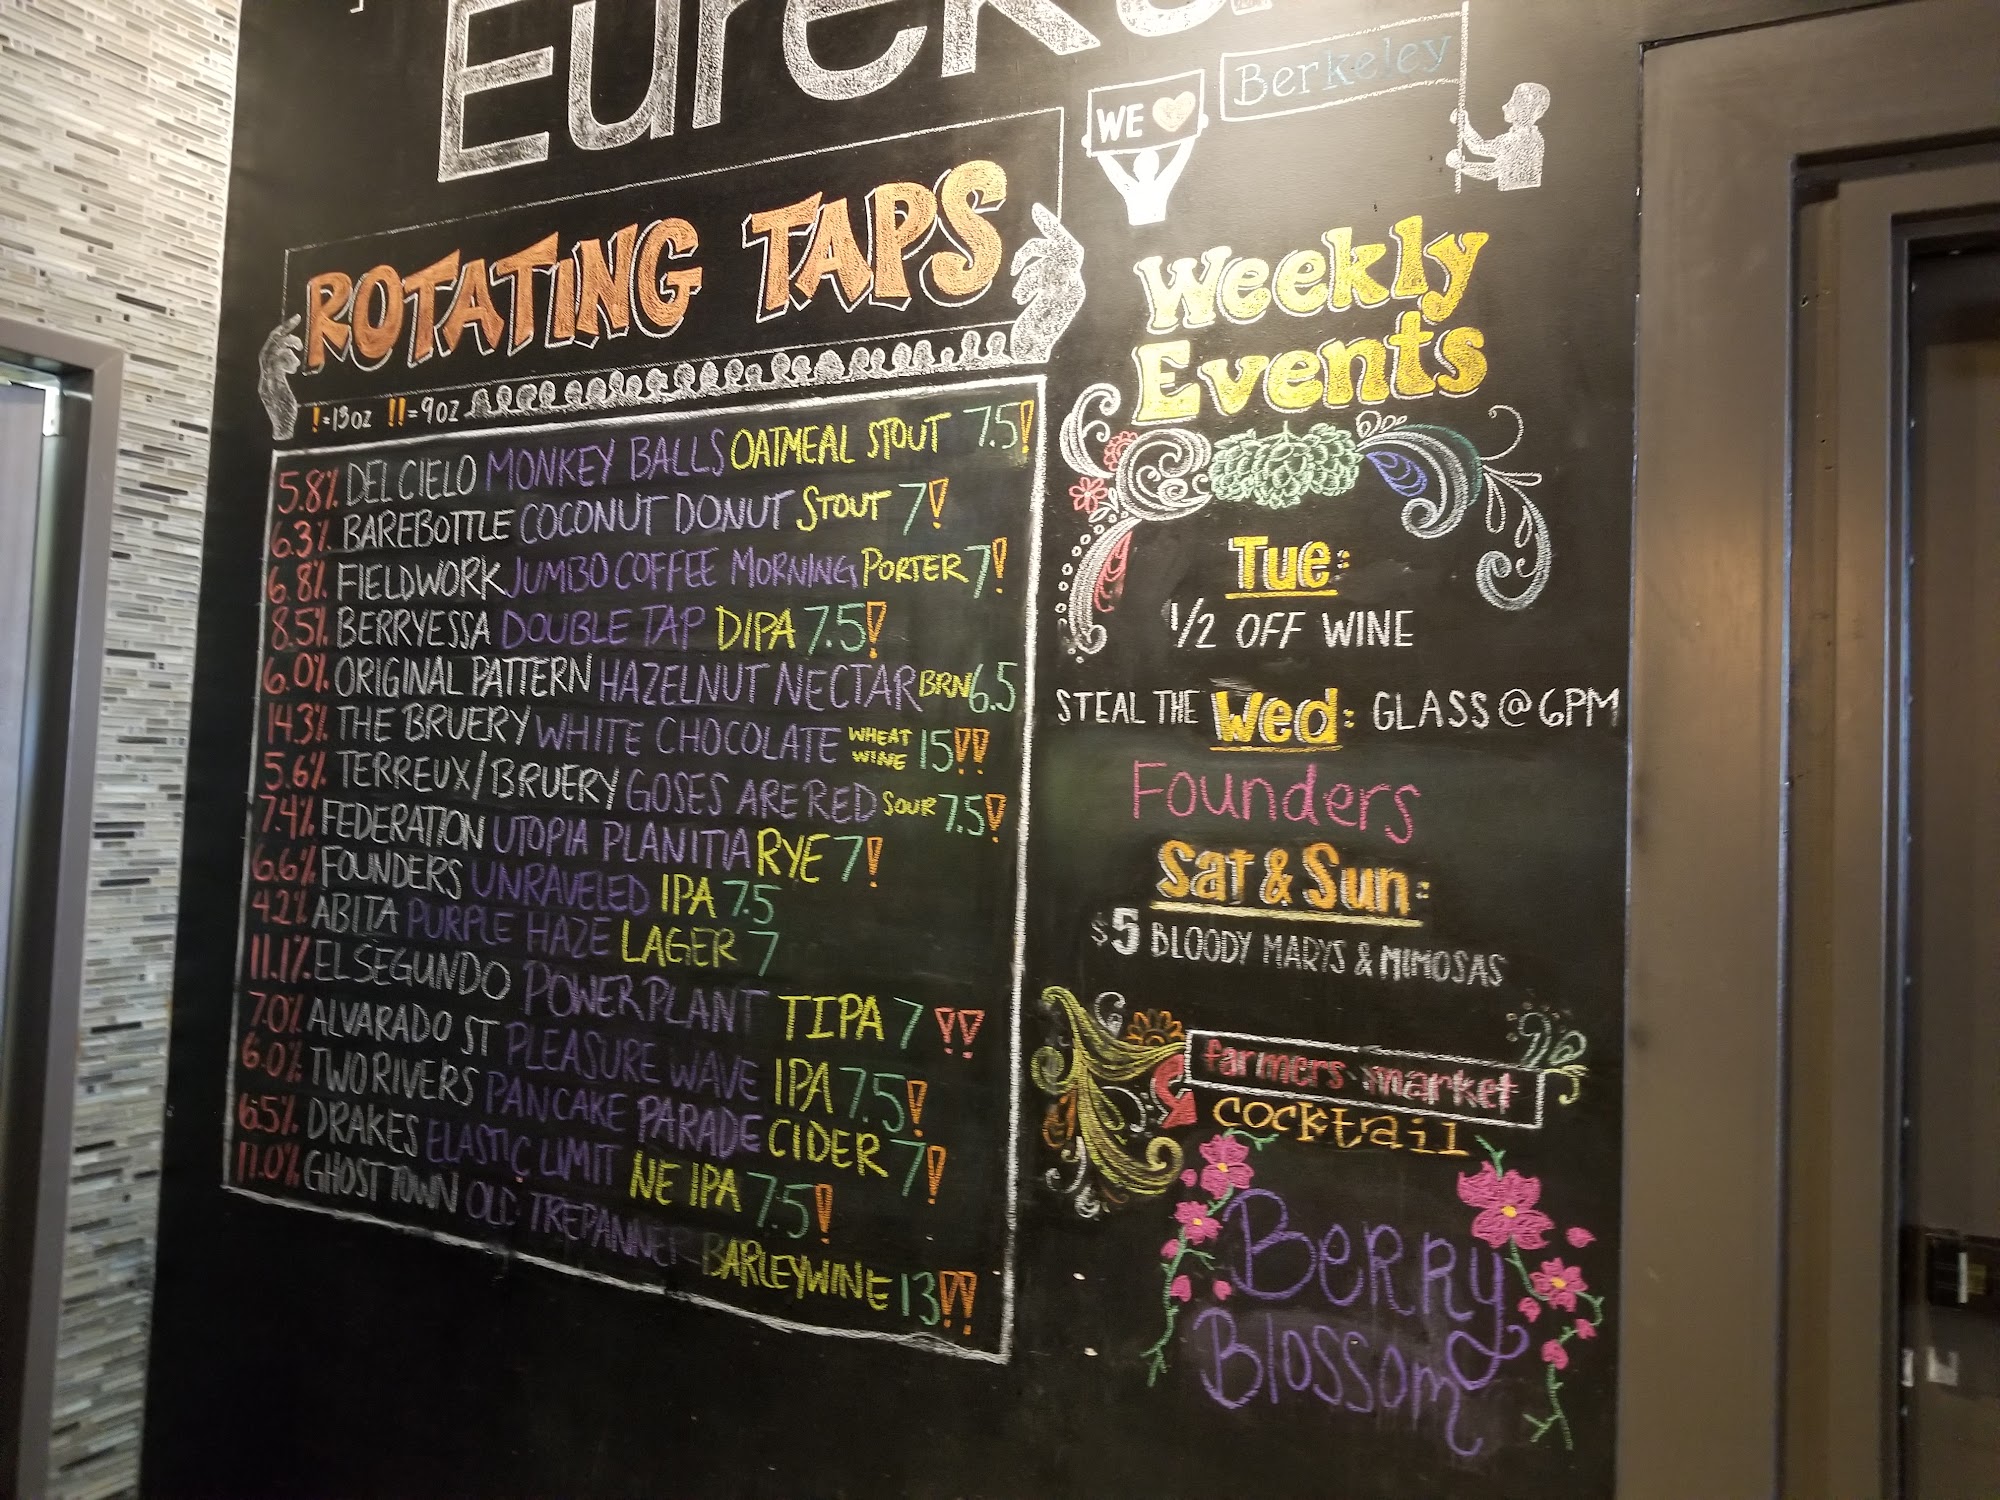 Eureka
WE
Berkeley
ROTATING TAPS
!=13oz !!=9oz
5.8% DEL CIELO MONKEY BALLS OATMEAL STOUT 7.5!
6.3% BAREBOTTLE COCONUT DONUT STOUT 7!
6.8% FIELDWORK JUMBO COFFEE MORNING PORTER 7!
8.5% BERRYESSA DOUBLE TAP DIPA 7.5!
6.0% ORIGINAL PATTERN HAZELNUT NECTAR BRN 6.5
14.3% THE BRUERY WHITE CHOCOLATE WHEAT WINE 15!!
5.6% TERREUX/BRUERY GOSES ARE RED SOUR 7.5!
7.4% FEDERATION UTOPIA PLANITIA RYE 7!
6.6% FOUNDERS UNRAVELED IPA 7.5
4.2% ABITA PURPLE HAZE LAGER 7
11.1% EL SEGUNDO POWER PLANT TIPA 7 !!
7.0% ALVARADO ST PLEASURE WAVE IPA 7.5!
6.0% TWO RIVERS PANCAKE PARADE CIDER 7!
6.5% DRAKES ELASTIC LIMIT NE IPA 7.5!
11.0% GHOST TOWN OLD TREPANNER BARLEYWINE 13!!
Weekly
Events
Tue:
1/2 OFF WINE
STEAL THE Wed: GLASS @ 6PM
Founders
Sat & Sun:
$5 BLOODY MARYS & MIMOSAS
farmers market
cocktail
Berry
Blossom